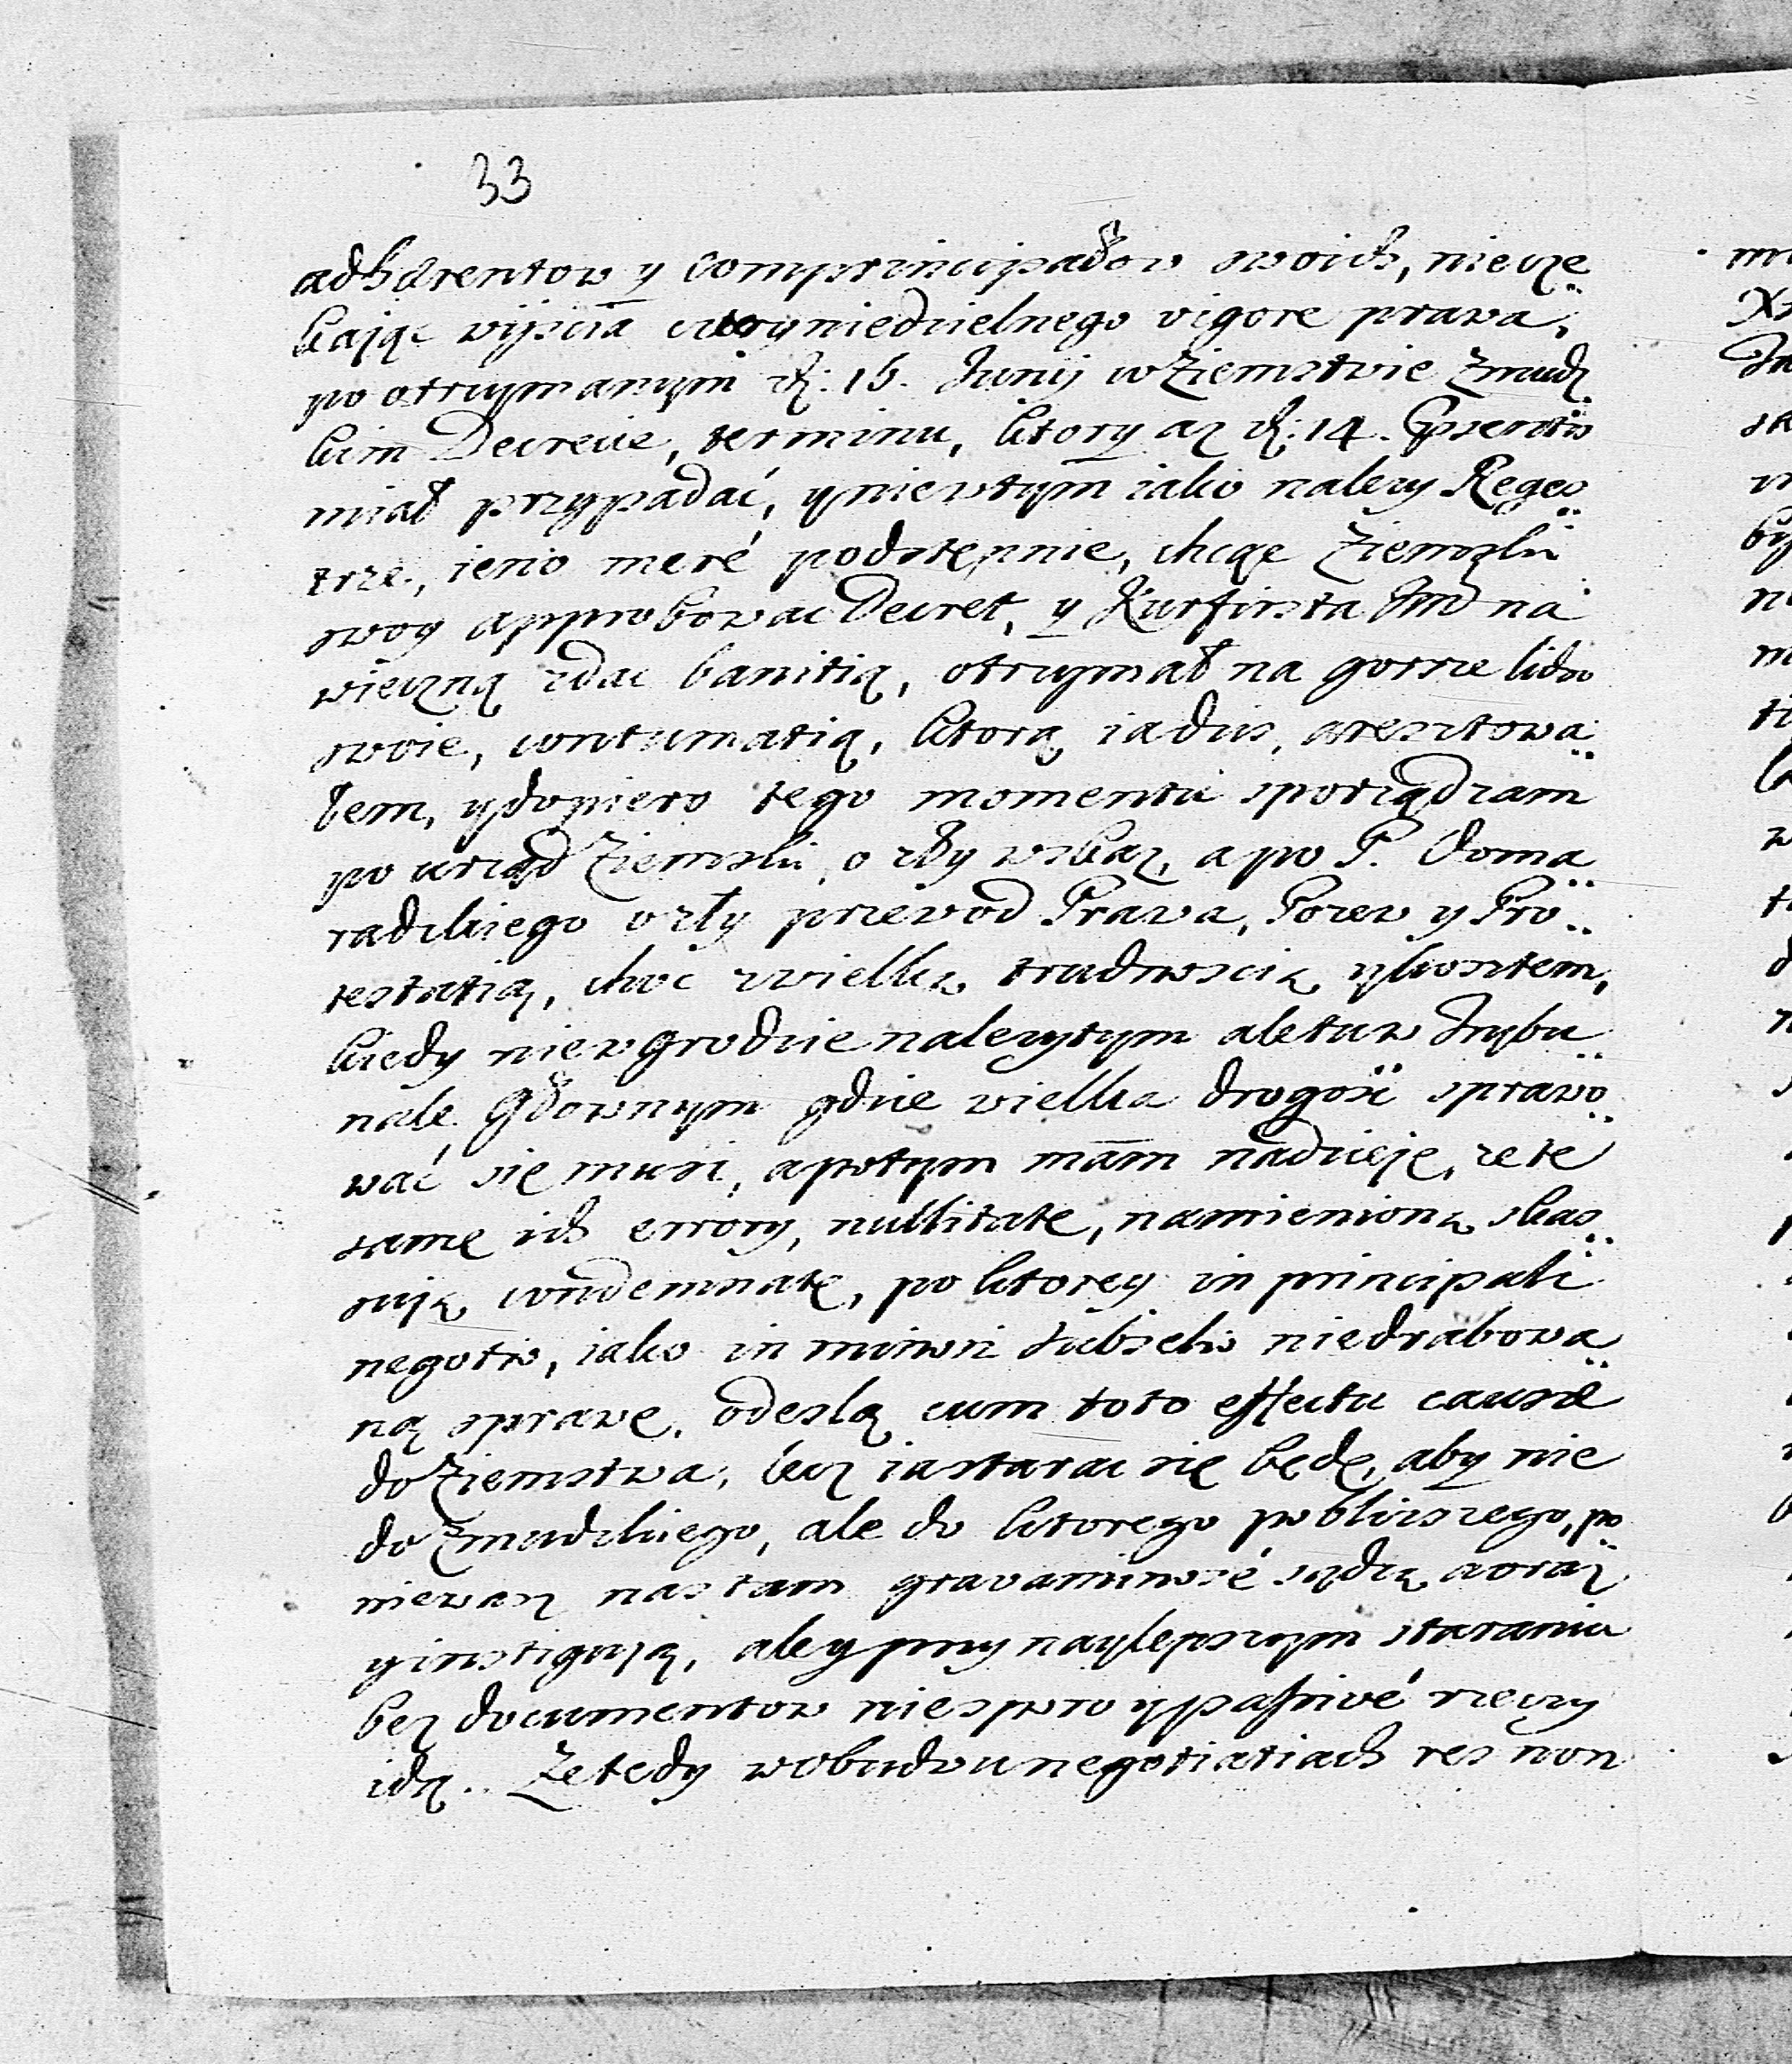 33
adhærentow y comprincipałow swoich, nie cze
kając wyscia czteryniedzielnego vigore prawa,
po otrzymanym d: 16. Junij w Ziemstwie Zmudz
kim Decrecie, terminu, ktory az d: 14. Gpsentis
miał przypadać, y nie w tym iako nalezy Reges
trze, ieno meré podstępnie, chcąc Ziemski
swoy approbowac Decret, y Kurfirsta Jmd na
wieczną zdac banitią, otrzymał na gorsze licho
swoie, contumatią, ktorą ia dzis, aresztowa
łem, y dopiero tego momentu sporządzam
po urząd Ziemski, o zły wskaz, a po P. Doma
radzkiego o zły przewod Prawa, Pozew y Pro
testatią, choc z wielką trudnoscią y kosztem,
kiedy nie w Grodzie nalezytym ale tu w Trybu
nale Głownym gdzie wielka drogość sprawo
wać się musi, a potym mam nadzieję, ze te
same ich errory, nullitate, namienioną skas
sują condemnatę, po ktorey in principali
negotio, iako in minori subselio niedrabowa
ną sprawę, odeslą cum toto effectu causæ
do Ziemstwa, lecz ia starac się będę, aby nie
do Zmudzkiego, ale do ktorego pobliszego, po
niewaz nas tam gravaminosé sądzą
y instigują, ale y przy naylepszym staraniu
bez documentow niesporo y passivé rzeczy
idą. Ze tedy w obudwu negotiatiach res non
mu